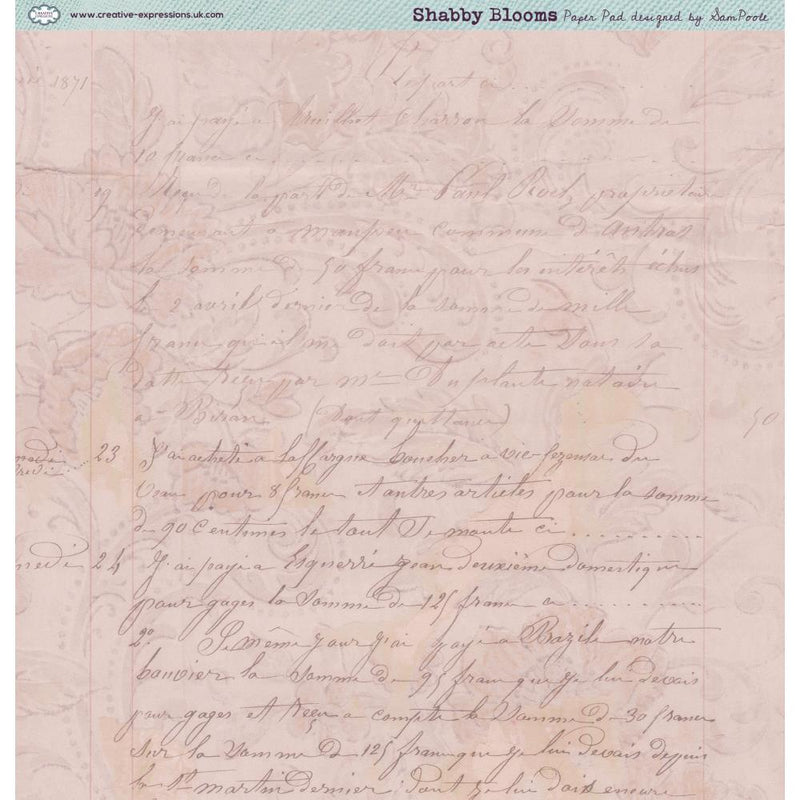 www.creative-expressions.uk.com
Shabby Blooms Paper Pad designed by Sam Poole
1871
J'ai payé a charron la Somme de
10 francs ci
19 Reçu de la part de Mr Paul propriétaire
Demeurant a commune d'
la somme de 50 franc pour les intérêts échus
le 2 avril dernier de la somme de mille
franc qu'il me doit par acte Sous sa
datte Reçu par Mtre Duplante
a (Dont quittance)
50
23 J'ai acheté a Laffargue boucher a vic-fezensac du
Veau pour 8 franc et autres articles pour la somme
de 90 Centimes le tout Se monte ci
24 J'ai payé a Esquerré Jean deuxième domestique
pour gages la Somme de 125 franc ci
2o Le même jour J'ai payé a Bazile notre
bouvier la Somme de 95 franc que je lui devais
pour gages et Reçu a compte la Somme de 30 francs
Sur la Somme de 125 franc que je lui devais depuis
la St martin dernier; Dont je lui dois encore